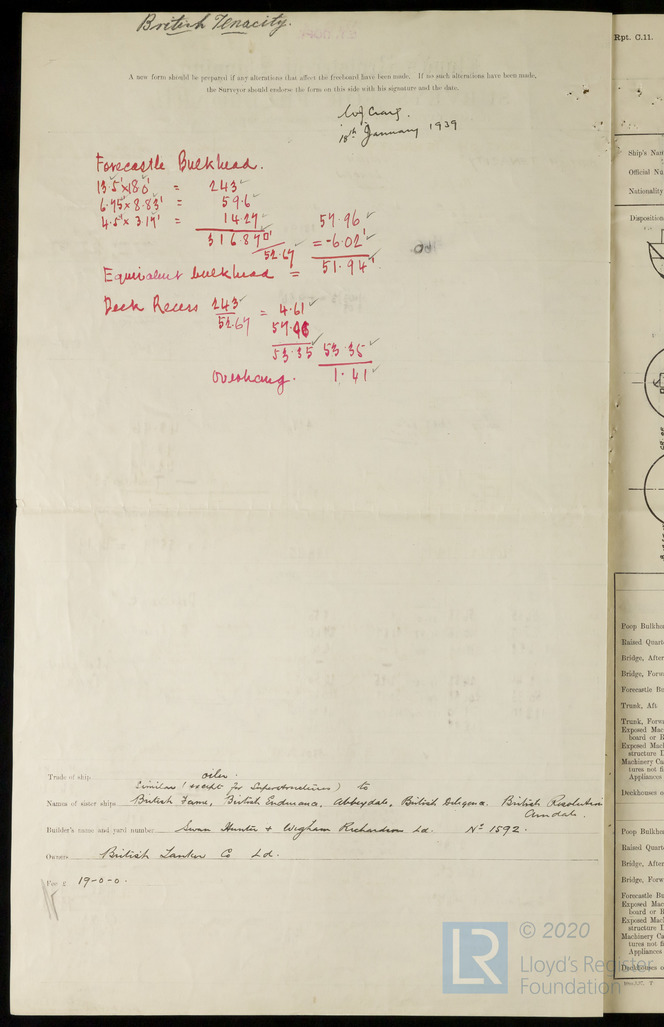 British Tenacity.
A new form should be prepared if any alterations that affect the freeboard have been made. If no such alterations have been made,
the Surveyor should endorse the form on this side with his signature and the date.
18th January 1939
Forecastle Bulkhead.
13.5' x 18.0' = 243
6.75' x 8.83' = 59.6
4.5' x 3.17' = 14.27
316.87
52.67
57.96
= -6.02'
Equivalent bulkhead = 51.94'
Deck Recess 243 = 4.61
52.67
57.96
53.35 53.35
overhang. 1.41
Trade of ship oiler.
Similar (except for Superstructures) to
Names of sister ships British Fame, British Endurance, Abbeydale, British Diligence, British Resolution
Arndale.
Builder's name and yard number Swan Hunter & Wigham Richardson Ld. No 1592.
Owners British Tanker Co Ld.
Fee £ 19-0-0.
Rpt. C.11.
Ship's Nam
Official Nu
Nationality
Disposition
Poop Bulkhe
Raised Quart
Bridge, After
Bridge, Forw
Forecastle Bu
Trunk, Aft
Trunk, Forwa
Exposed Mac
board or R
Exposed Mach
structure D
Machinery Ca
tures not fi
Appliances
Deckhouses o
Poop Bulkhe
Raised Quart
Bridge, After
Bridge, Forw
Forecastle Bu
Exposed Mac
board or R
Exposed Mac
structure D
Machinery Ca
tures not fi
Appliances
Deckhouses o
LR © 2020
Lloyd's Register
Foundation